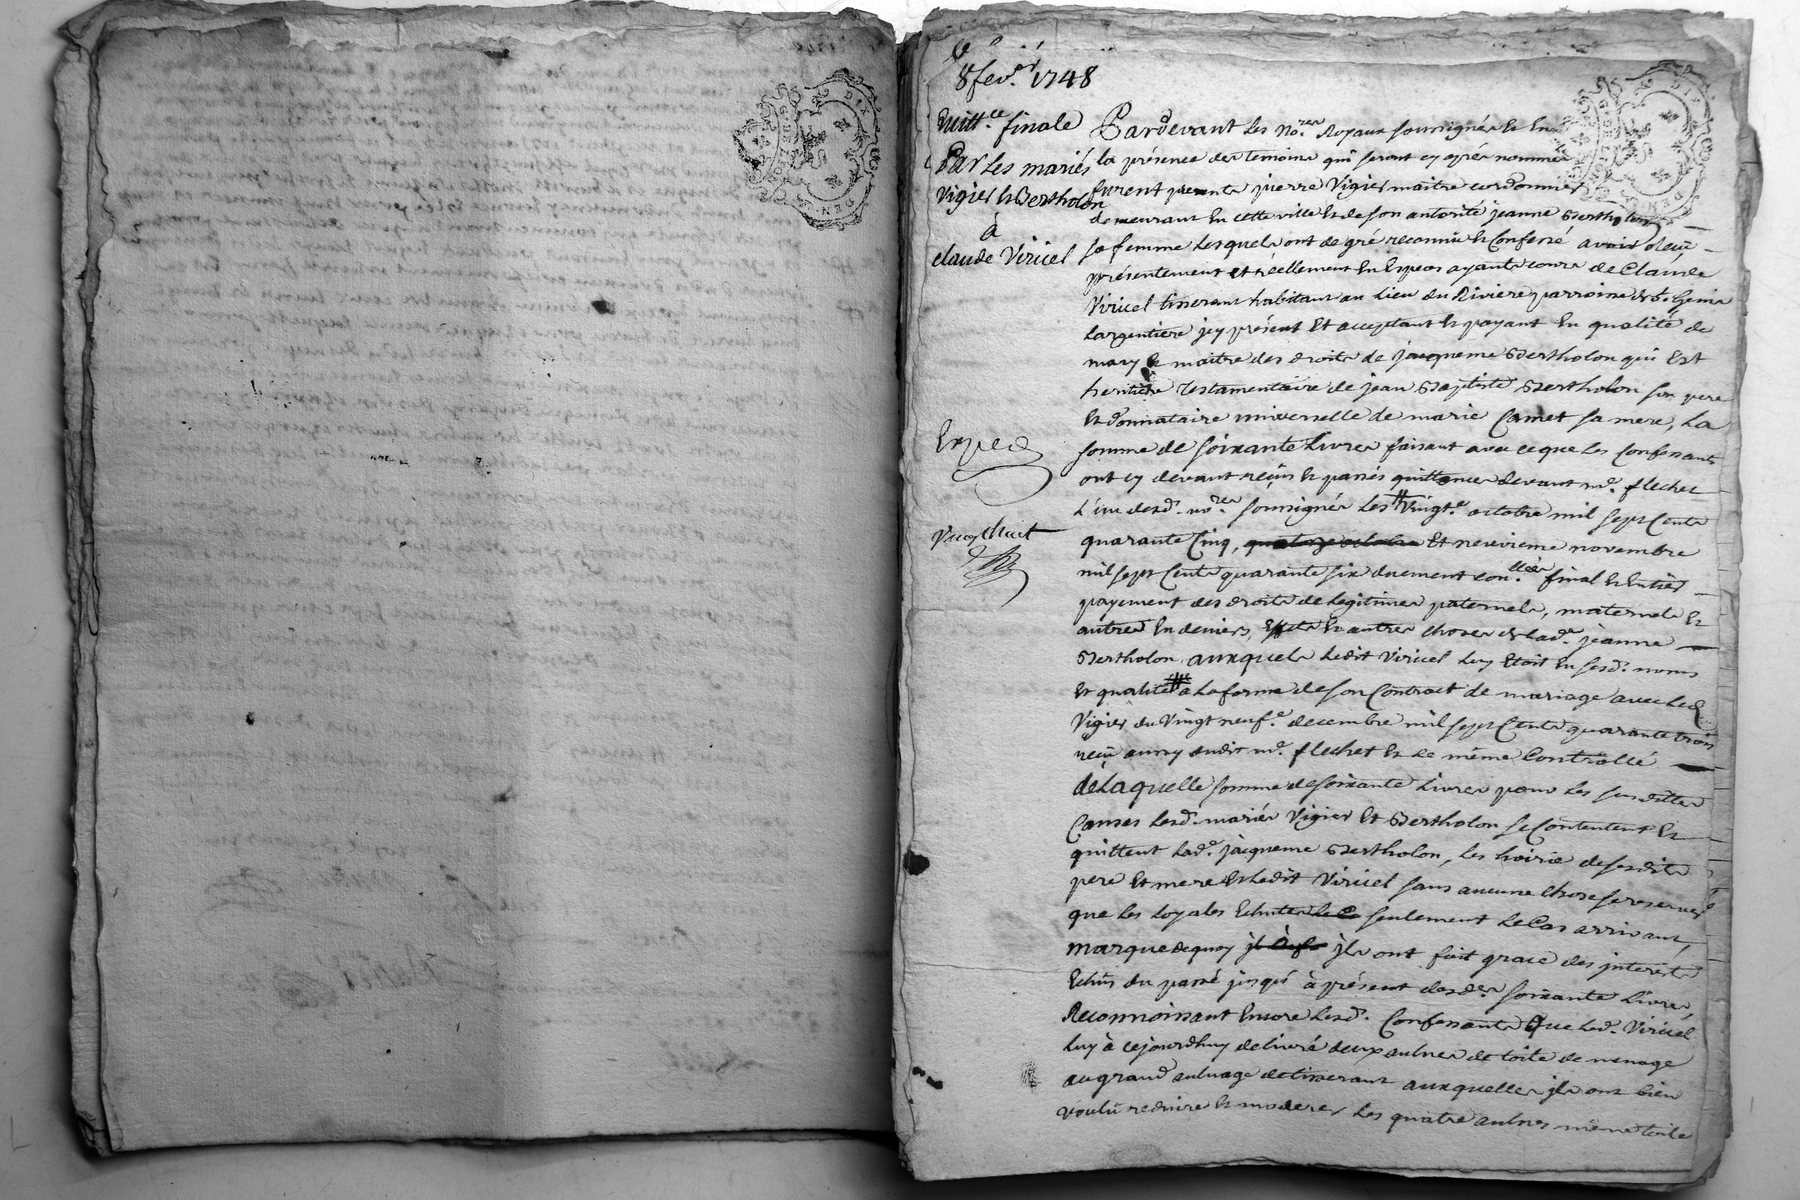 8 fev.er 1748
Quitt.ce finale
Par les mariés
Vigier & Bertholon
à
claude Viricel
Exped
Vingt huit
Pardevant les no.res royaux soussignés et en
la présence des temoins qui seront cy aprés nommés
furent presents pierre Vigier maitre cordonnier
demeurant en cette ville et de son autorité jeanne Bertholon
sa femme lesquels ont de gré reconnu et Confessé avoir receu
présentement et réellement en Especes ayants cours de Claude
Viricel tisserant habitant au lieu du Riviere parroisse de St.
largentiere jcy présent et acceptant et payant en qualité de
mary et maitre des droits de jacqueme Bertholon qui Est
heritiere testamentaire de jean Baptiste Bertholon son pere
et donnataire universelle de marie Camet sa mere, La
somme de soixante livres faisant avec ce que les Confessants
ont cy devant reçus et passés quittances devant m.e flechet
l'un desd. no.res soussignés les vingt.e octobre mil sept Cents
quarante Cinq, quatorze octobre Et neuvieme novembre
mil sept Cents quarante six duement con.llés final et Entier
payement des droits de legitimes paternels, maternels et
autres En deniers, Effets et autres choses de lad.e jeanne
Bertholon auxquels ledit Viricel luy etoit en sesd. noms
et qualités à la forme de son Contract de mariage avec led.
Vigier du Vingt neuf.e decembre mil sept Cents quarante trois
reçu aussy dudit m.e flechet et de même Controllé
de Laquelle somme de soixante Livres pour les susdittes
Causes lesd. mariés Vigier et Bertholon se Contentent et
quittent lad.e jacqueme Bertholon, les hoiries de sesdits
pere et mere et ledit Viricel sans aucune chose se reserver
que les loyales Echutes seulement le Cas arrivant,
marque de quoy jls ont fait grace des jnterests
Echûs du passé jusqu'à présent desd.es soixante Livres,
Reconnoissant Encore lesd. Confessants que led. Viricel
luy à cejourdhuy delivré deux aulnes de toile de menage
au grand aulnage de tisserant auxquelles jls ont bien
voulu reduire et moderer les quatre aulnes même toile